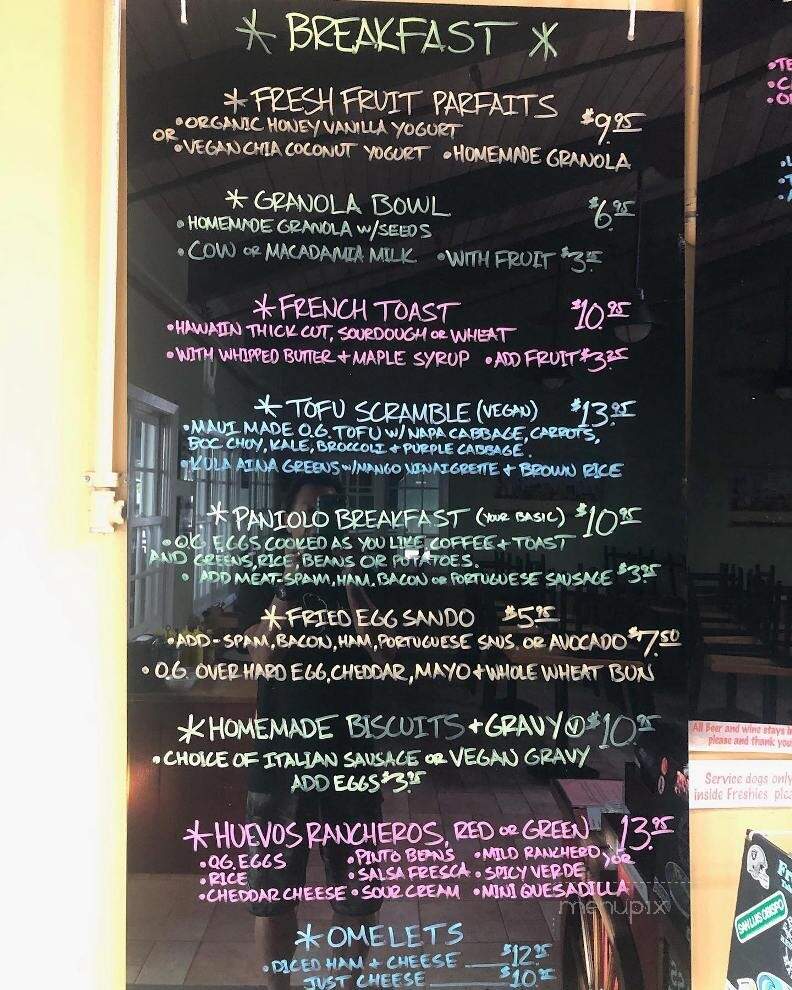 * BREAKFAST *
* FRESH FRUIT PARFAITS $9.95
OR • ORGANIC HONEY VANILLA YOGURT
• VEGAN CHIA COCONUT YOGURT • HOMEMADE GRANOLA
* GRANOLA BOWL $6.95
• HOMEMADE GRANOLA W/SEEDS
• COW OR MACADAMIA MILK • WITH FRUIT
* FRENCH TOAST $10.95
• HAWAIIN THICK CUT, SOURDOUGH OR WHEAT
• WITH WHIPPED BUTTER + MAPLE SYRUP • ADD FRUIT $3.25
* TOFU SCRAMBLE (VEGAN) $13.95
• MAUI MADE O.G. TOFU W/ NAPA CABBAGE, CARROTS,
BOC CHOY, KALE, BROCCOLI + PURPLE CABBAGE.
• KULA AINA GREENS W/MANGO VINAIGRETTE + BROWN RICE
* PANIOLO BREAKFAST (YOUR BASIC) $10.95
• O.G. EGGS COOKED AS YOU LIKE, COFFEE + TOAST
AND GREENS, RICE, BEANS OR POTATOES.
• ADD MEAT-SPAM, HAM, BACON OR PORTUGUESE SAUSAGE
* FRIED EGG SANDO $5.95
• ADD - SPAM, BACON, HAM, PORTUGUESE SAUS. OR AVOCADO $7.50
• O.G. OVER HARD EGG, CHEDDAR, MAYO + WHOLE WHEAT BUN
* HOMEMADE BISCUITS + GRAVY V $10.95
• CHOICE OF ITALIAN SAUSAGE OR VEGAN GRAVY
ADD EGGS
* HUEVOS RANCHEROS, RED OR GREEN 13.95
• O.G. EGGS • PINTO BEANS • MILD RANCHERO OR
• RICE • SALSA FRESCA • SPICY VERDE
• CHEDDAR CHEESE • SOUR CREAM • MINI QUESADILLA
* OMELETS
• DICED HAM + CHEESE $12.95
JUST CHEESE $10.95
All Beer and wine stays
please and thank you
Service dogs only
inside Freshies
SAN LUIS OBISPO
menupix